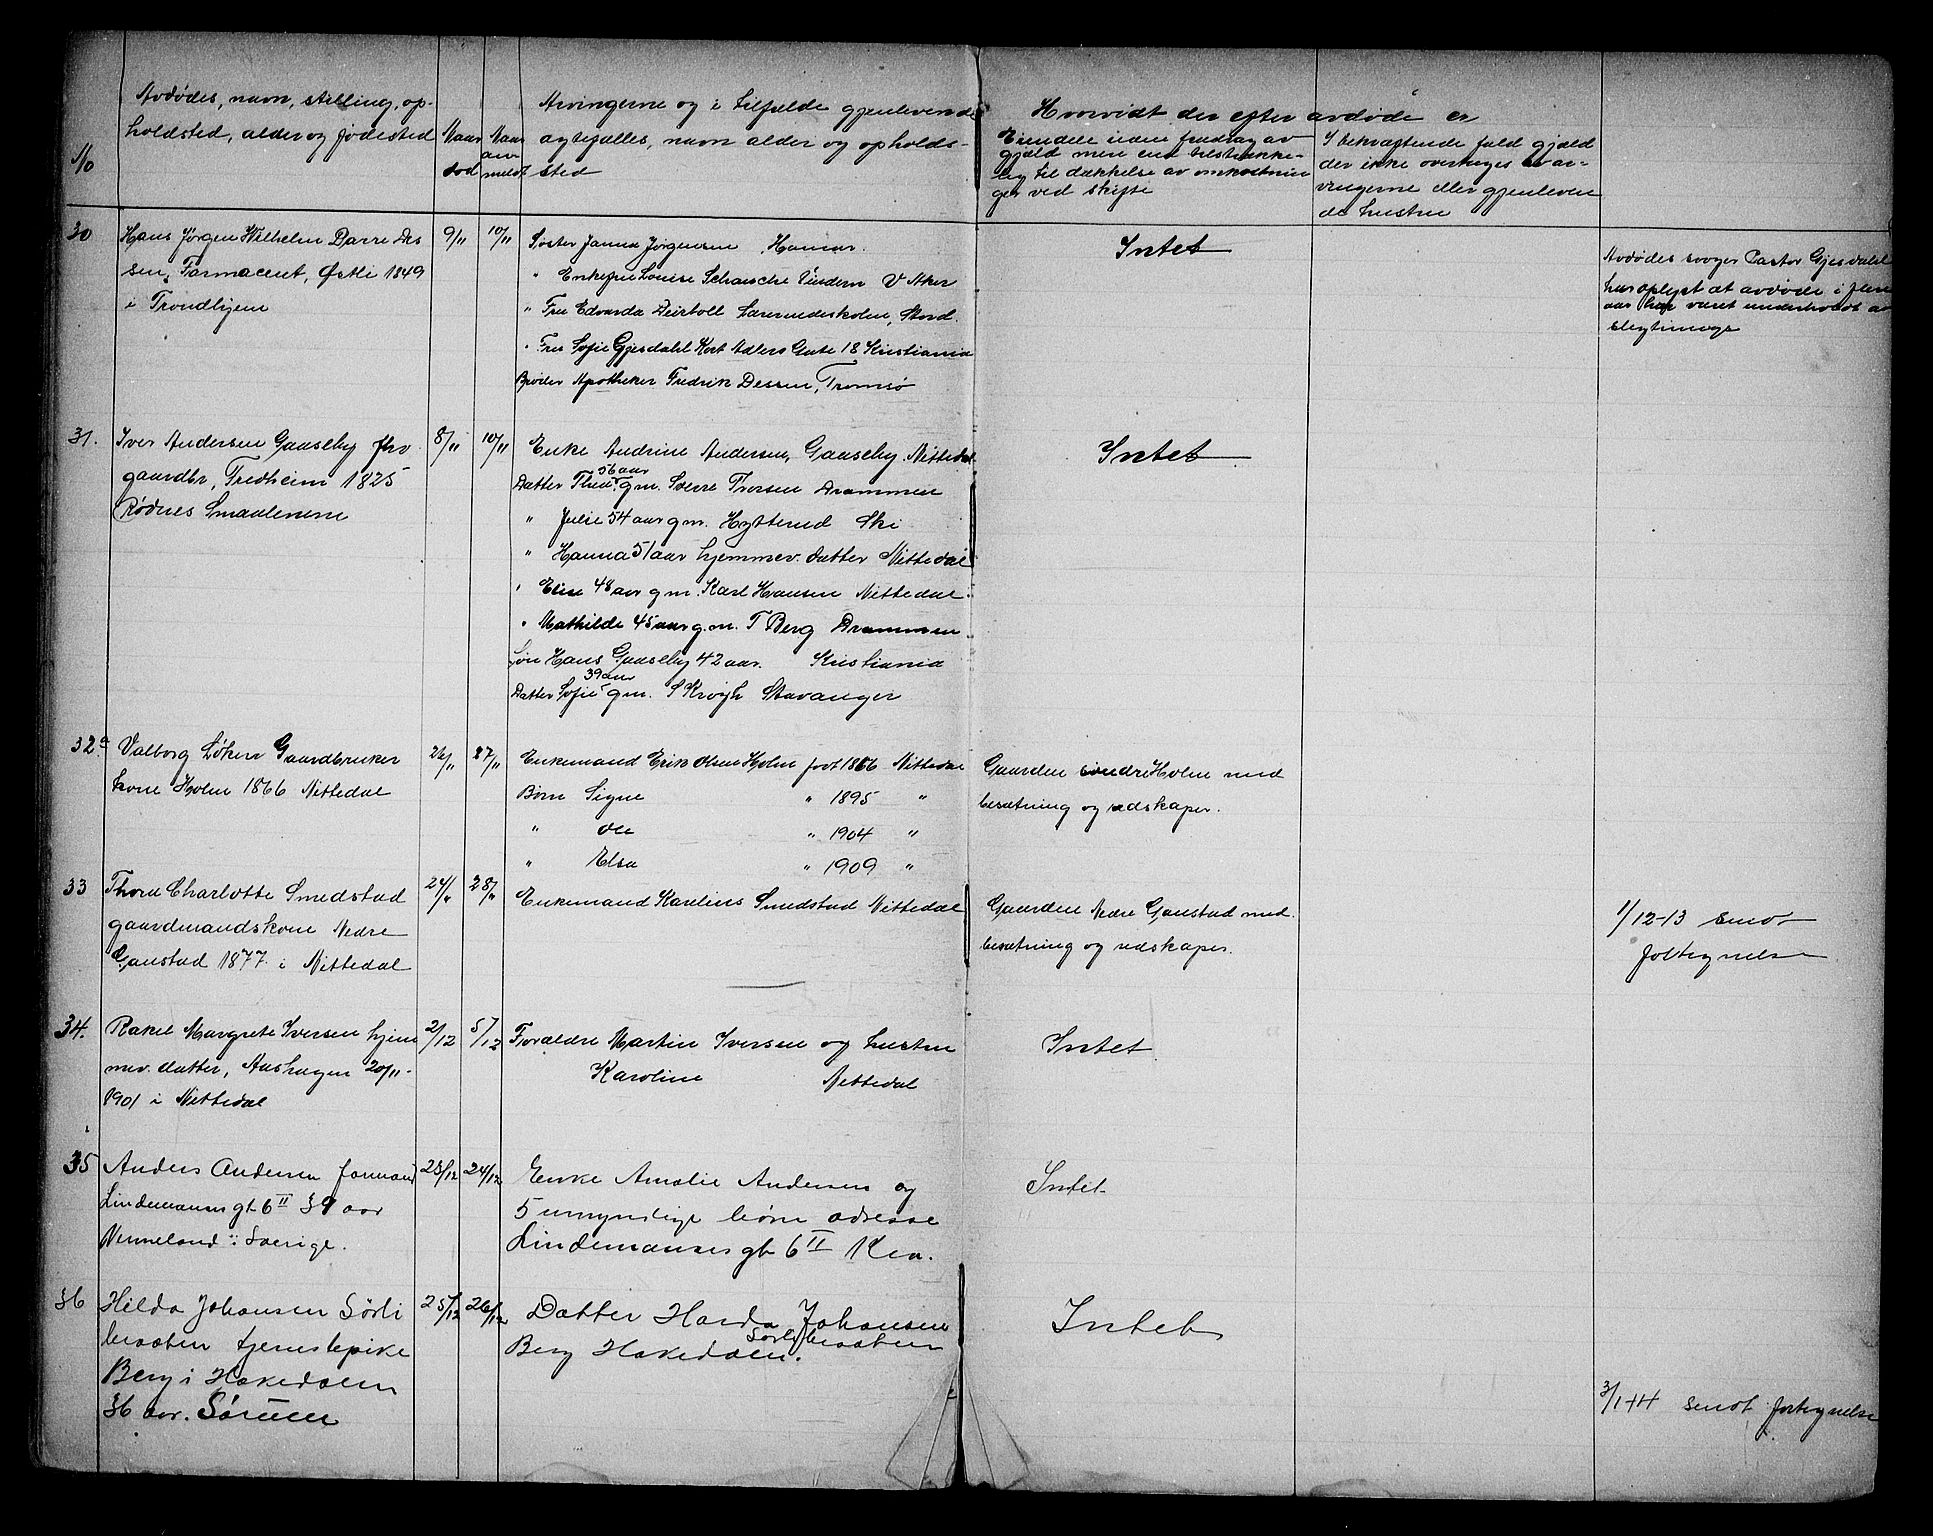 N/o
Avdødes, navn, stilling, op-
holdsted, alder og fødested
Naar
død
Naar
an-
meldt
Arvingerne og i tilfælde gjenlevende
ægtefælles, navn alder og opholds-
sted
Hvorvidt der efter avdøde er
Eiendele uden fradrag av
gjæld mere end tilstrække-
lig til dækkelse av omkostnin
ger ved skifte
I bekræftende fald gjæld
der ikke overtages av ar-
vingerne eller gjenleven
de hustru
30
Hans Jørgen Wilhelm Darre Des
sen, Farmaceut, Østli 1849
i Trondhjem
9/11
10/11
Søster Janna Jørgensen Hamar.
" Enkefru Louise Schanche Vindern V Aker
" Fru Edvarda Deinboll Lærerindeskolen, Stord.
" Fru Sofie Gjesdahl Kort Adlers Gate 18 Kristiania
Broder Apotheker Fredrik Dessen, Tromsø
Intet
Avdødes svoger Pastor Gjesdahl
har oplyst at avdøde i flere
aar har været underholdt av
slegtninge
31.
Iver Andersen Gaaseby fhv
gaardbr, Fredheim 1825
Rødnes Smaalenene
8/11
10/11
Enke Andrine Andersen, Gaaseby. Nittedal.
56 aar
Datter Thea gm. Sverre Thorsen Drammen
" Julie 54 aar gm. Hytterud Ski
" Hanna 51 aar hjemmev. datter Nittedal
" Elise 48 aar gm. Karl Hansen Nittedal.
" Mathilde 45 aar g.m. T Berg Drammen.
Søn Hans Gaaseby 42 aar. Kristiania
39 aar
Datter Sofie gm. S Krogh Stavanger
Intet
32a
Valborg Løken Gaardbruker
kone Holm 1866 Nittedal
26/11
27/11
Enkemand Erik Olsen Holm født 1866 Nittedal
Børn Signe " 1895 "
" Ole " 1904 "
" Elsa " 1909 "
Gaarden søndre Holm med
besætning og redskaper.
33
Thora Charlotte Smedstad
gaardmandskone Nedre
Gaustad 1877 i Nittedal
24/11
28/11
Enkemand Karelius Smedstad Nittedal
Gaarden Nedre Gaustad med
besætning og redskaper.
1/12-13 imot
fortegnelse
34.
Rakel Margrete Iversen hjem
mev. datter, Aashagen 20/11-
1901 i Nittedal
2/12
5/12
Forældre Martin Iversen og hustru
Karoline Nittedal
Intet
35
Anders Andersen formand
Lindemansgt 6 II 39 aar
Vermeland i Sverige.
23/12
24/12
Enke Amalie Andersen og
5 umyndige børn adresse
Lindemansgt 6 II Kra.
Intet
36
Hilda Johansen Sørli
braaten tjenestepike
Berg i Hakedalen
36 aar. Sørum
25/12
26/12
Datter Harda Johansen
Sørlibraaten
Berg Hakedalen.
Intet
3/1-14 imot fortegnelse